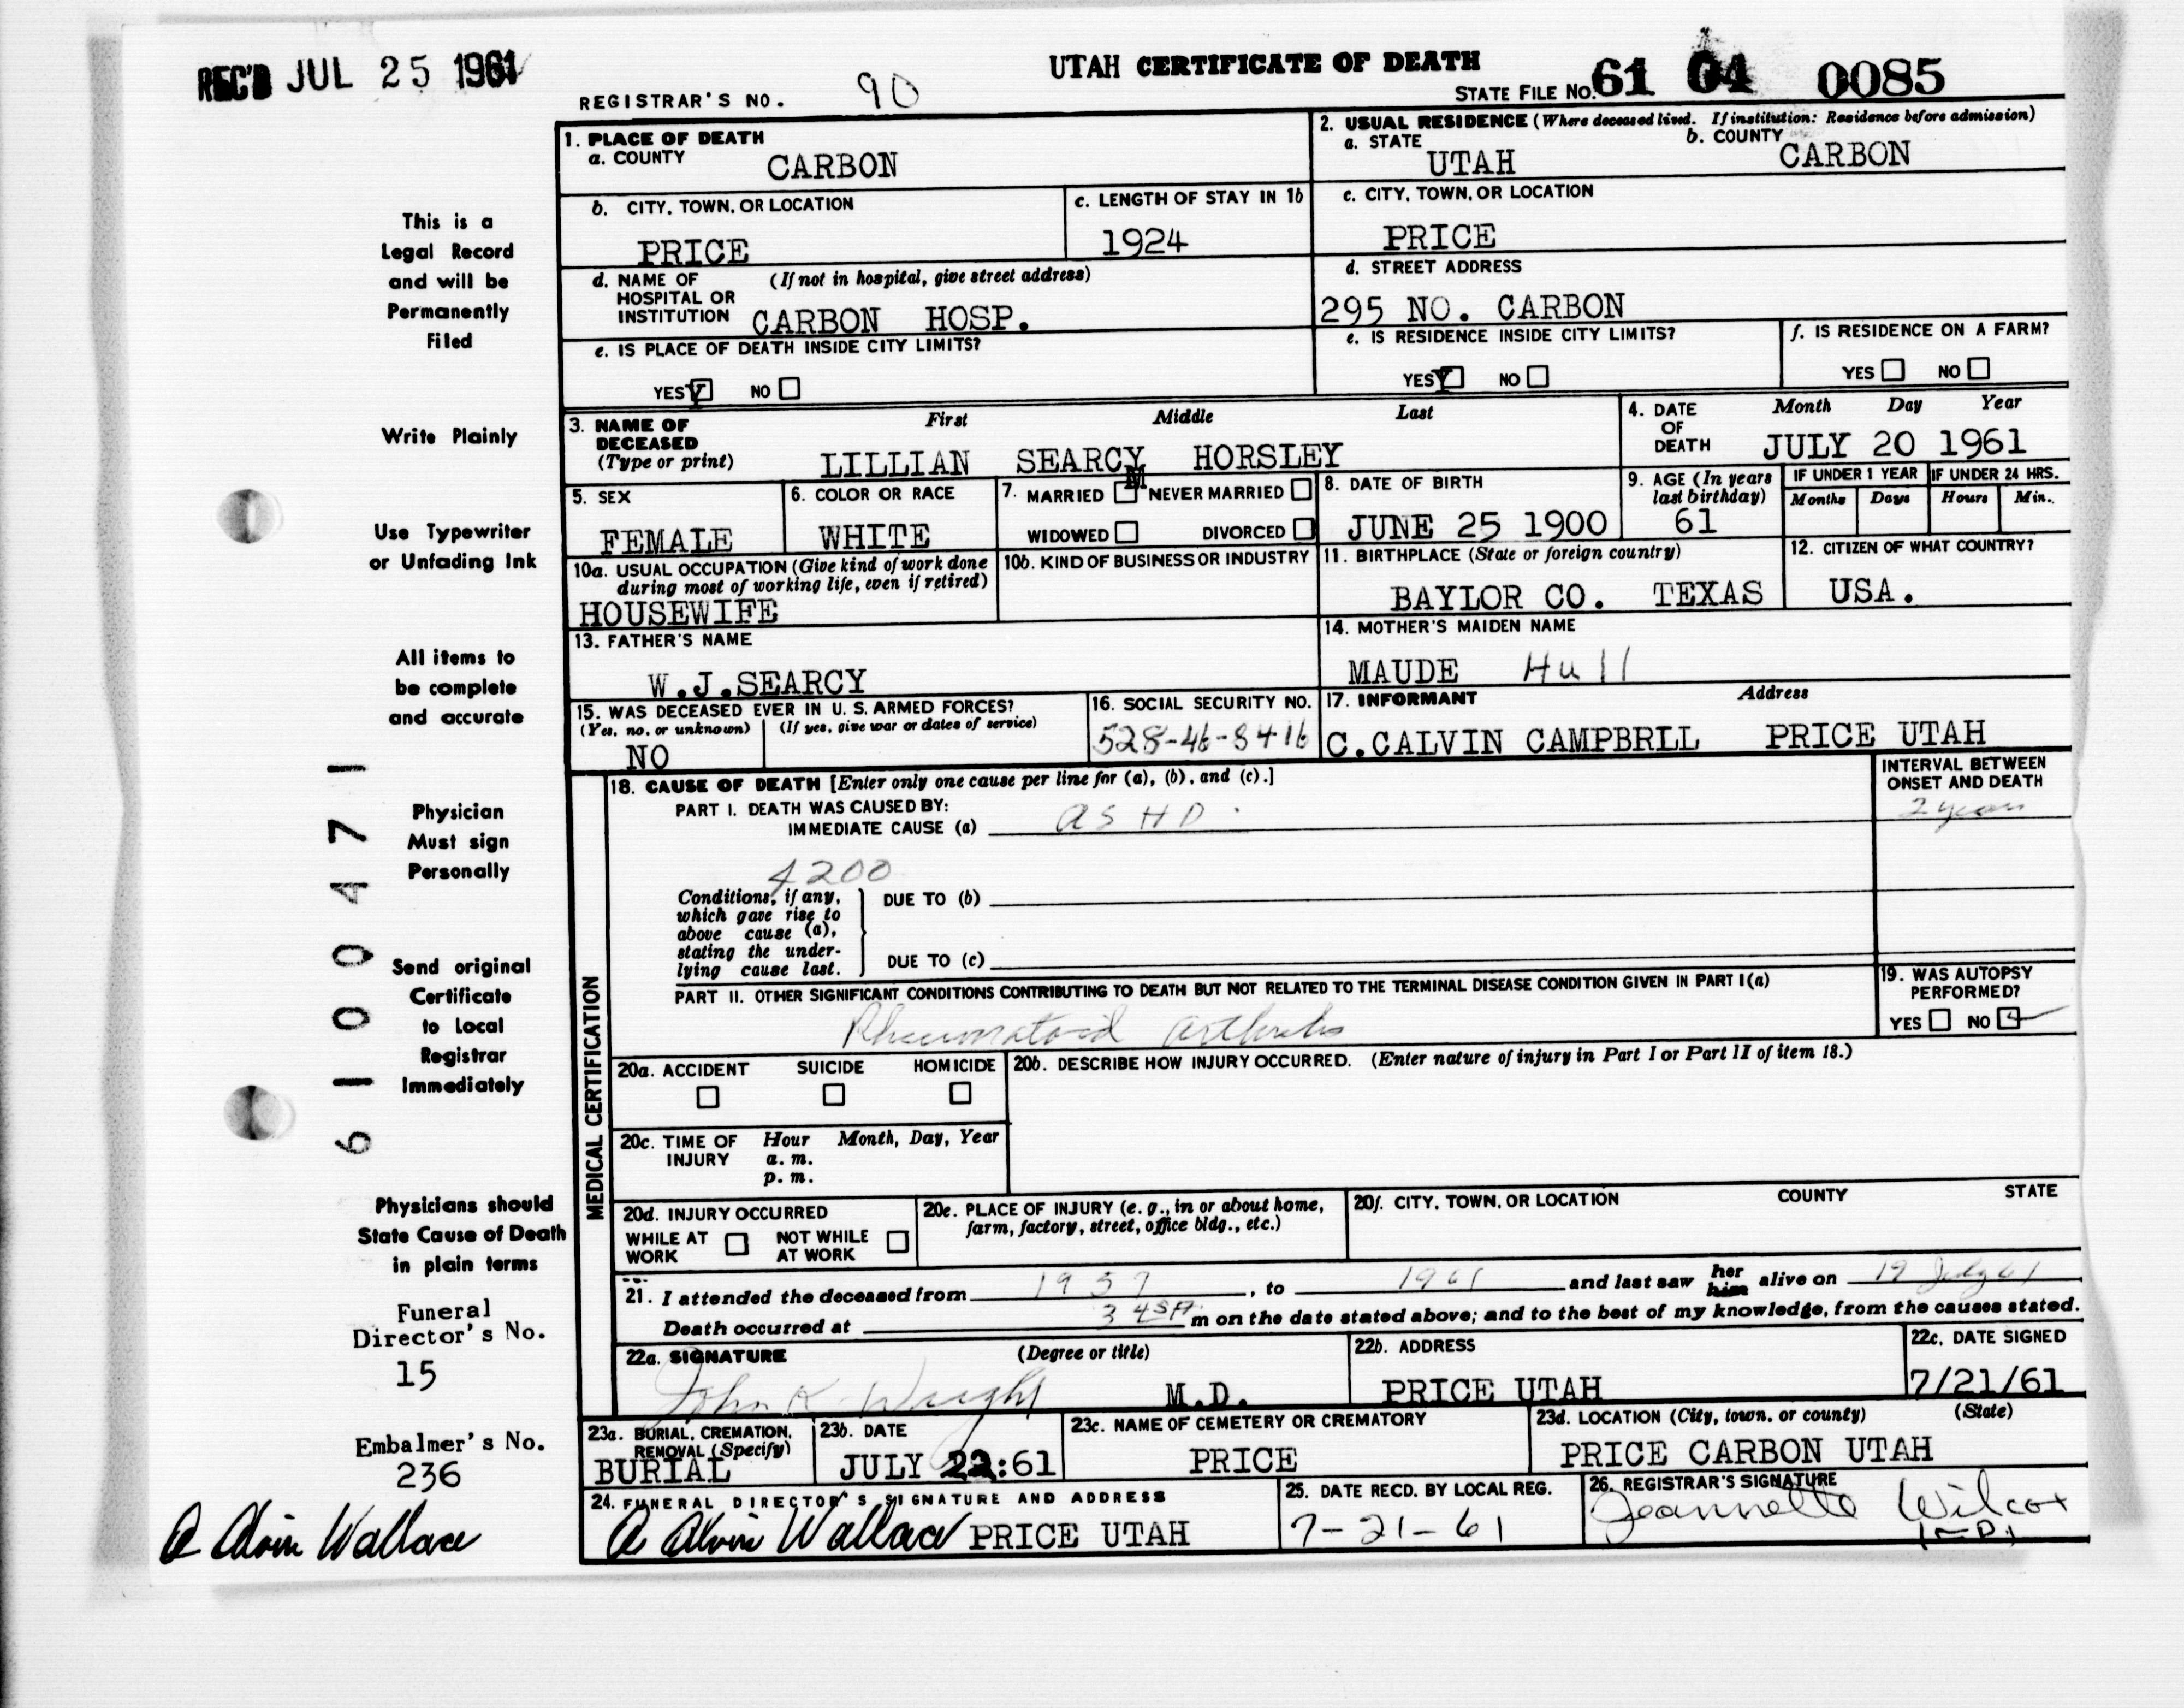 REC'D JUL 25 1961
UTAH CERTIFICATE OF DEATH
REGISTRAR'S NO. 90
STATE FILE NO. 61 04 0085
This is a
Legal Record
and will be
Permanently
Filed
Write Plainly
Use Typewriter
or Unfading Ink
All items to
be complete
and accurate
Physician
Must sign
Personally
Send original
Certificate
to Local
Registrar
Immediately
Physicians should
State Cause of Death
in plain terms
Funeral
Director's No.
15
Embalmer's No.
236
A Alvin Wallace
6100471
1. PLACE OF DEATH
a. COUNTY CARBON
2. USUAL RESIDENCE (Where deceased lived. If institution: Residence before admission)
a. STATE UTAH b. COUNTY CARBON
b. CITY, TOWN, OR LOCATION PRICE
c. LENGTH OF STAY IN 1b 1924
c. CITY, TOWN, OR LOCATION PRICE
d. NAME OF HOSPITAL OR INSTITUTION (If not in hospital, give street address)
CARBON HOSP.
d. STREET ADDRESS
295 NO. CARBON
e. IS PLACE OF DEATH INSIDE CITY LIMITS?
YES Y NO
e. IS RESIDENCE INSIDE CITY LIMITS?
YES Y NO
f. IS RESIDENCE ON A FARM?
YES NO
3. NAME OF DECEASED (Type or print)
First Middle Last
LILLIAN SEARCY HORSLEY
4. DATE OF DEATH Month Day Year
JULY 20 1961
5. SEX FEMALE
6. COLOR OR RACE WHITE
7. MARRIED M NEVER MARRIED
WIDOWED DIVORCED
8. DATE OF BIRTH JUNE 25 1900
9. AGE (In years last birthday) 61
IF UNDER 1 YEAR Months Days
IF UNDER 24 HRS. Hours Min.
10a. USUAL OCCUPATION (Give kind of work done during most of working life, even if retired)
HOUSEWIFE
10b. KIND OF BUSINESS OR INDUSTRY
11. BIRTHPLACE (State or foreign country)
BAYLOR CO. TEXAS
12. CITIZEN OF WHAT COUNTRY?
USA.
13. FATHER'S NAME
W.J.SEARCY
14. MOTHER'S MAIDEN NAME
MAUDE Hull
15. WAS DECEASED EVER IN U. S. ARMED FORCES?
(Yes, no, or unknown) (If yes, give war or dates of service)
NO
16. SOCIAL SECURITY NO.
528-46-8416
17. INFORMANT Address
C.CALVIN CAMPBRLL PRICE UTAH
MEDICAL CERTIFICATION
18. CAUSE OF DEATH [Enter only one cause per line for (a), (b), and (c).]
INTERVAL BETWEEN ONSET AND DEATH
PART I. DEATH WAS CAUSED BY:
IMMEDIATE CAUSE (a) ASHD. 2 years
4200
Conditions, if any, which gave rise to above cause (a), stating the underlying cause last.
DUE TO (b)
DUE TO (c)
PART II. OTHER SIGNIFICANT CONDITIONS CONTRIBUTING TO DEATH BUT NOT RELATED TO THE TERMINAL DISEASE CONDITION GIVEN IN PART I(a)
Rheumatoid arthritis
19. WAS AUTOPSY PERFORMED?
YES NO
20a. ACCIDENT SUICIDE HOMICIDE
20b. DESCRIBE HOW INJURY OCCURRED. (Enter nature of injury in Part I or Part II of item 18.)
20c. TIME OF INJURY Hour Month, Day, Year
a. m.
p. m.
20d. INJURY OCCURRED
WHILE AT WORK NOT WHILE AT WORK
20e. PLACE OF INJURY (e. g., in or about home, farm, factory, street, office bldg., etc.)
20f. CITY, TOWN, OR LOCATION COUNTY STATE
21. I attended the deceased from 1957, to 1961 and last saw her him alive on 19 July 61
Death occurred at 3 45P m on the date stated above; and to the best of my knowledge, from the causes stated.
22a. SIGNATURE (Degree or title)
John K Wright M.D.
22b. ADDRESS
PRICE UTAH
22c. DATE SIGNED
7/21/61
23a. BURIAL, CREMATION, REMOVAL (Specify)
BURIAL
23b. DATE
JULY 22:61
23c. NAME OF CEMETERY OR CREMATORY
PRICE
23d. LOCATION (City, town, or county) (State)
PRICE CARBON UTAH
24. FUNERAL DIRECTOR'S SIGNATURE AND ADDRESS
A Alvin Wallace PRICE UTAH
25. DATE RECD. BY LOCAL REG.
7-21-61
26. REGISTRAR'S SIGNATURE
Jeannette Wilcox